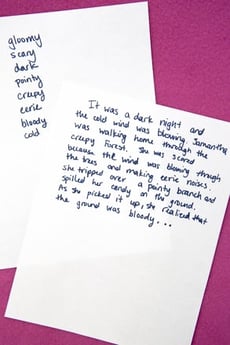 gloomy
scary
dark
pointy
creepy
eerie
bloody
cold
It was a dark night and
the cold wind was blowing. Samantha
was walking home through the
creepy forest. She was scared
because the wind was blowing through
the trees and making eerie noises.
She tripped over a pointy branch and
spilled her candy on the ground.
As she picked it up, she realized that
the ground was bloody...